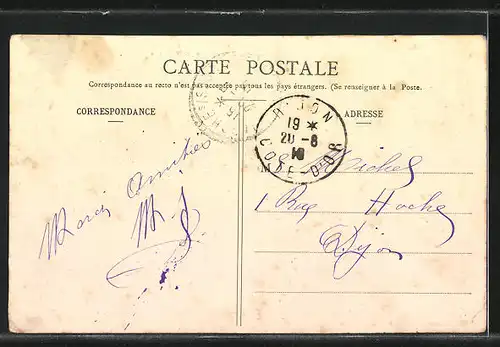 CARTE POSTALE
Correspondance au recto n'est pas acceptée par tous les pays étrangers. (Se renseigner à la Poste.
CORRESPONDANCE
ADRESSE
DIJON
19 *
20 - 8
10
COTE-D'OR
Michel
1 Rue Hoche
Dijon
Merci Amitiés